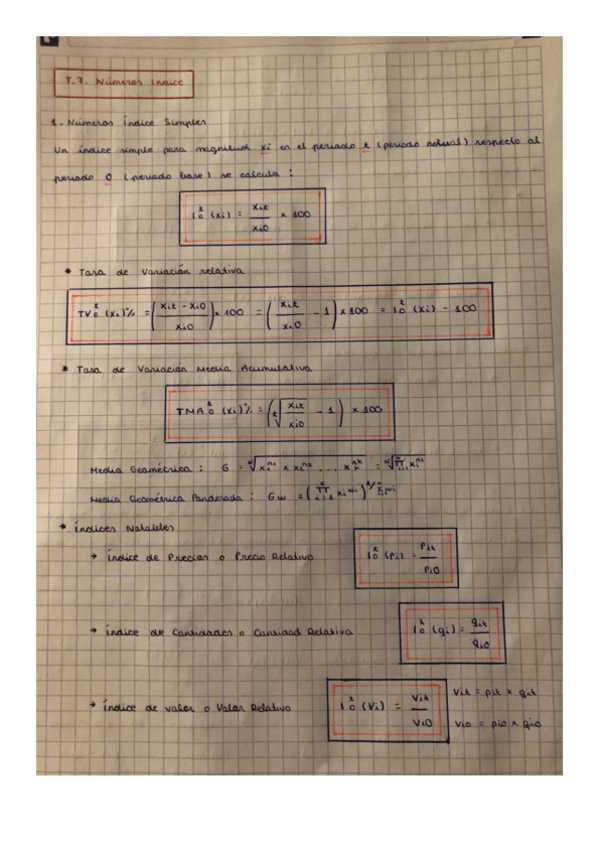 T.7. Números Índice
1. Números Índice Simples
Un índice simple para magnitud xi en el periodo t (periodo actual) respecto al
periodo 0 (periodo base) se calcula :
I₀ᵗ (xi) = xit / xi0 × 100
• Tasa de Variación relativa
TV₀ᵗ (xi)% = ( (xit - xi0) / xi0 ) × 100 = ( xit / xi0 - 1 ) × 100 = I₀ᵗ (xi) - 100
• Tasa de Variación Media Acumulativa
TMA₀ᵗ (xi)% = ( ᵗ√(xit / xi0) - 1 ) × 100
Media Geométrica : G =
Media Geométrica Ponderada : Gω =
• Índices Notables
→ Índice de Precios o Precio Relativo I₀ᵗ (Pi) = Pit / Pi0
→ Índice de Cantidades o Cantidad Relativa I₀ᵗ (qi) = qit / qi0
→ Índice de valor o Valor Relativo I₀ᵗ (Vi) = Vit / Vi0
Vit = pit × qit
Vi0 = pi0 × qi0